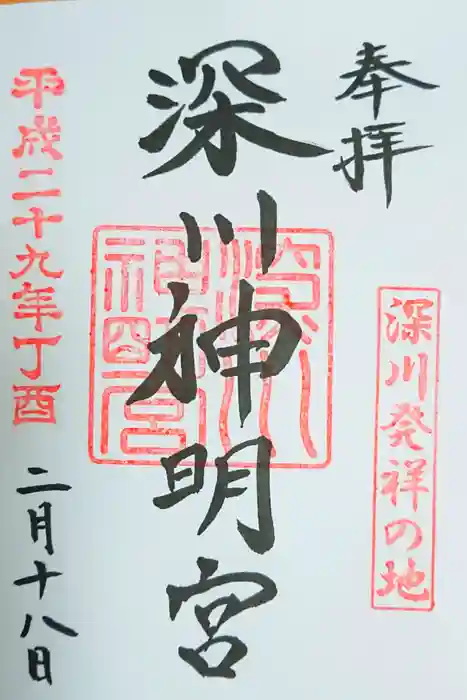 奉拝
深川発祥の地
深川神明宮
平成二十九年丁酉
二月十八日